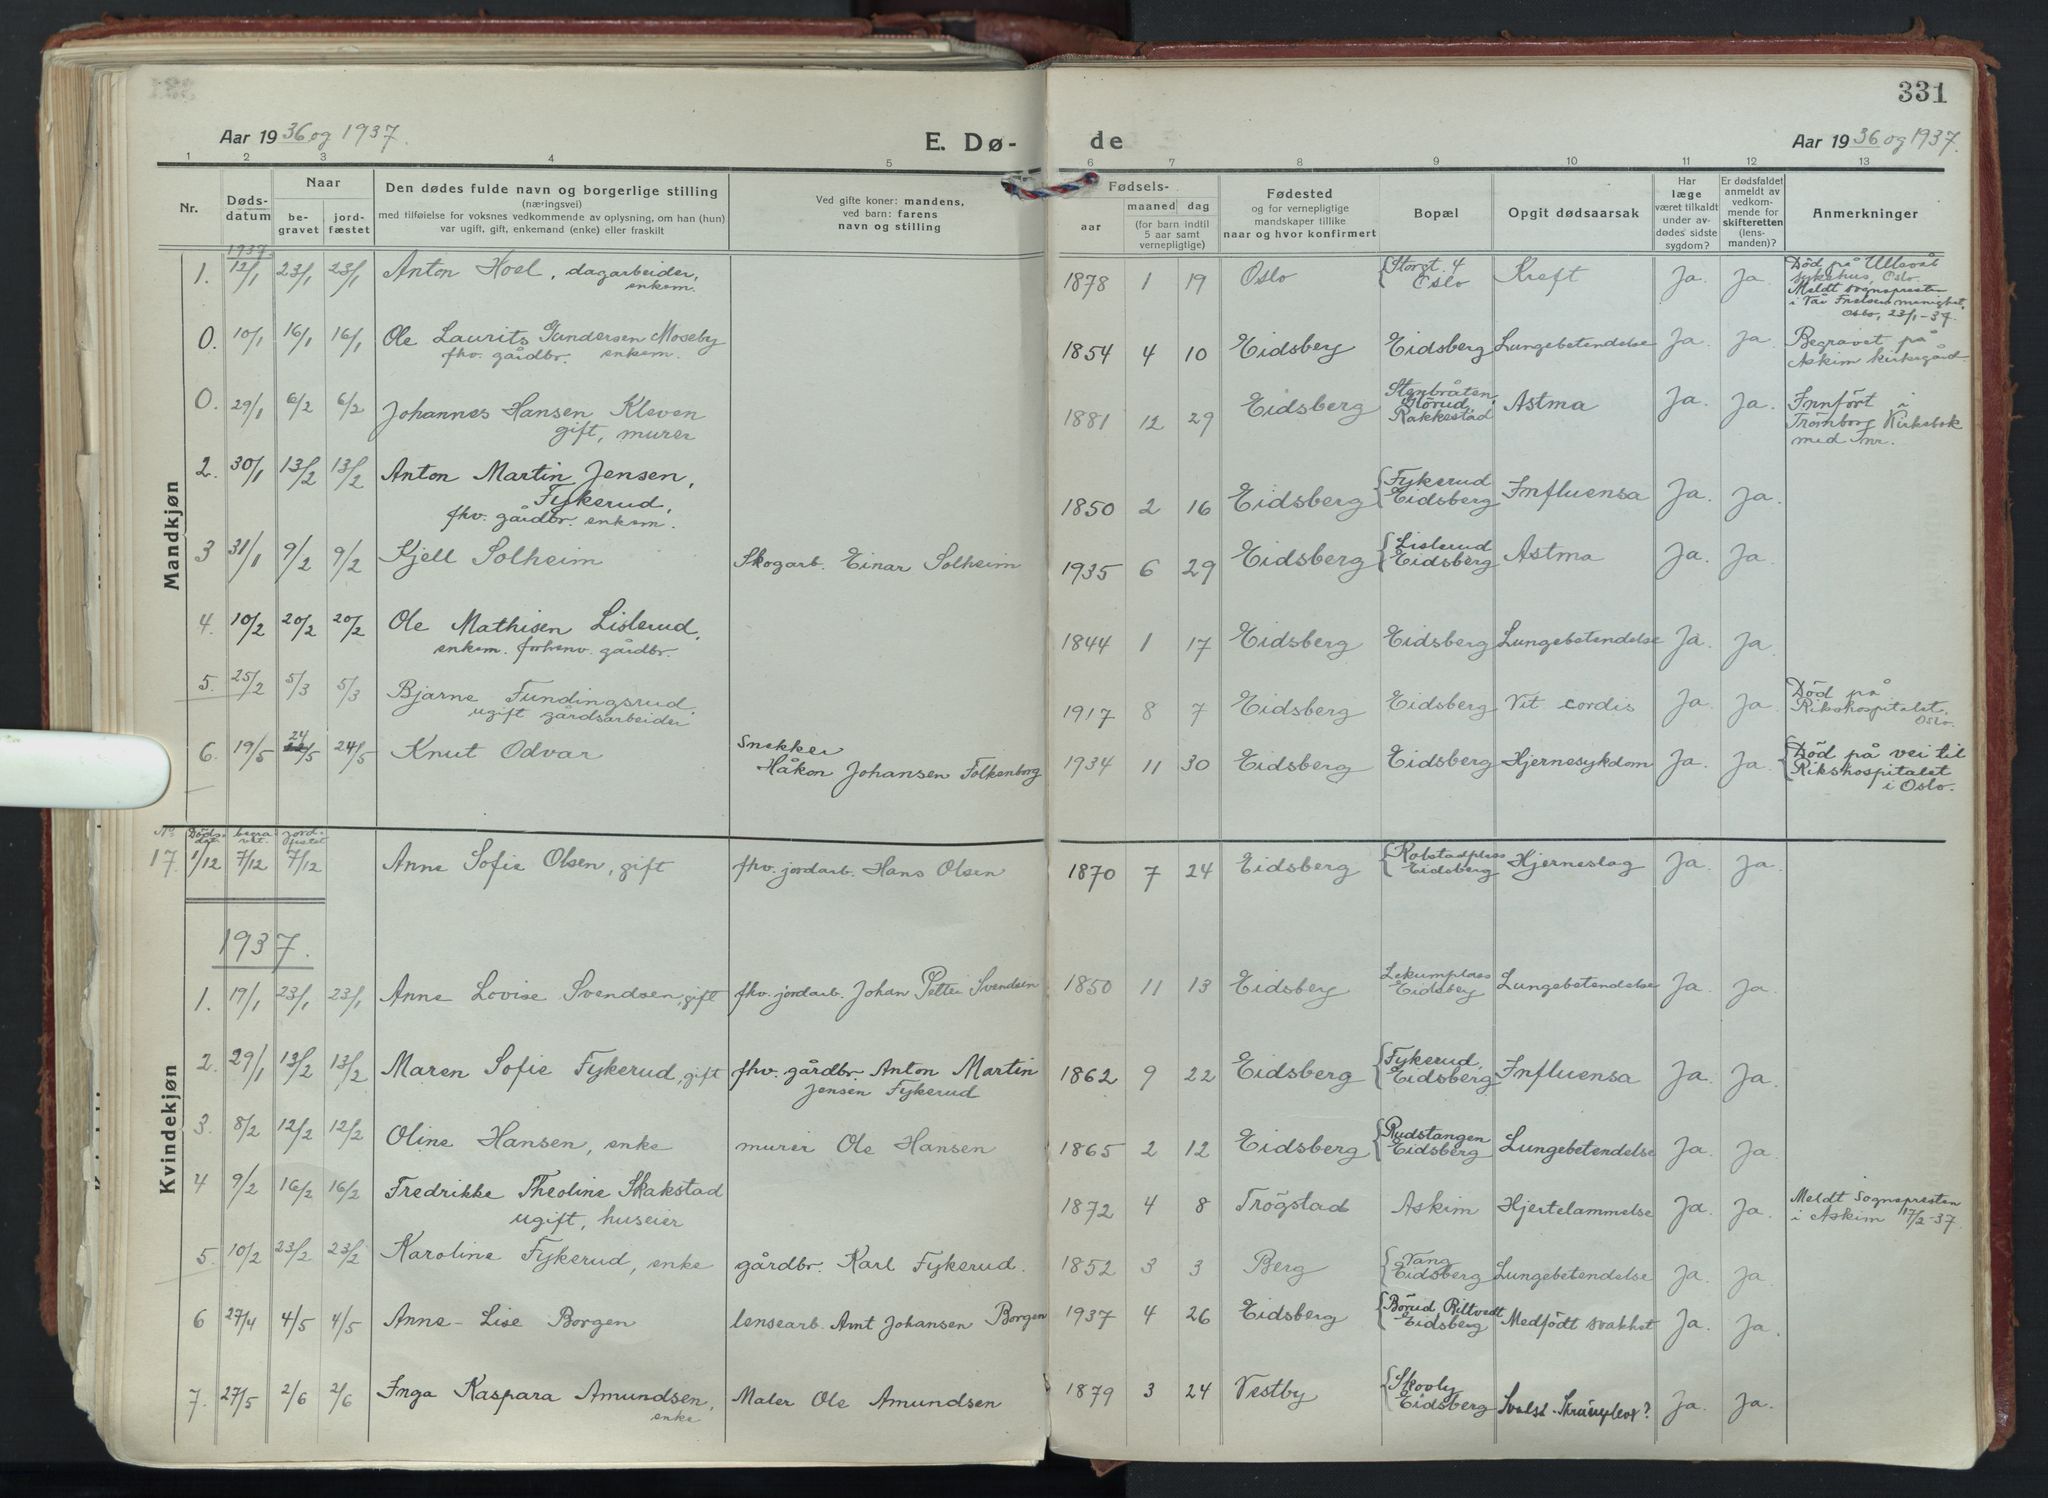 331
Aar 1936 og 1937.
E. Dø-
de
Aar 1936 og 1937.
1 2 3 4 5 6 7 8 9 10 11 12 13
Nr.
Døds-
datum
Naar
be-
gravet
jord-
fæstet
Den dødes fulde navn og borgerlige stilling
(næringsvei)
med tilføielse for voksnes vedkommende av oplysning, om han (hun)
var ugift, gift, enkemand (enke) eller fraskilt
Ved gifte koner: mandens,
ved barn: farens
navn og stilling
Fødsels-
aar
maaned dag
(for barn indtil
5 aar samt
vernepligtige)
Fødested
og for vernepligtige
mandskaper tillike
naar og hvor konfirmert
Bopæl
Opgit dødsaarsak
Har
læge
været tilkaldt
under av-
dødes sidste
sygdom?
Er dødsfaldet
anmeldt av
vedkom-
mende for
skifteretten
(lens-
manden)?
Anmerkninger
Mandkjøn
1937.
1. 12/1 23/1 23/1 Anton Hoel, dagarbeider,
enkem.
1878 1 19 Oslo Storgt. 4
Oslo Kreft Ja. Ja. Död på Ullevål
sykehus, Oslo.
Meldt sognepresten
i Vår Frelsers menighet,
Oslo, 23/1-37.
0. 10/1 16/1 16/1 Ole Laurits Gundersen Moseby
fhv. gårdbr. enkem.
1854 4 10 Eidsberg Eidsberg Lungebetendelse Ja. Ja. Begravet på
Askim kirkegård.
0. 29/1 6/2 6/2 Johannes Hansen Kleven
gift, murer
1881 12 29 Eidsberg Stenbråten,
Rakkestad Astma Ja. Ja. Innfört i
Trömborg Kirkebok
med nr.
2. 30/1 13/2 13/2 Anton Martin Jensen,
Fykerud,
fhv. gårdbr. enkem.
1850 2 16 Eidsberg Fykerud
Eidsberg Influensa Ja. Ja.
3 31/1 9/2 9/2 Kjell Solheim Skogarb. Einar Solheim
1935 6 29 Eidsberg Lislerud
Eidsberg Astma Ja. Ja.
4. 10/2 20/2 20/2 Ole Mathisen Lislerud,
enkem. forhenv. gårdbr.
1844 1 17 Eidsberg Eidsberg Lungebetendelse Ja. Ja.
5. 25/2 5/3 5/3 Bjarne Fundingsrud,
ugift gårdsarbeider
1917 8 7 Eidsberg Eidsberg Vit. cordis Ja. Ja. Död på
Rikshospitalet,
Oslo.
6. 19/5 24/5 24/5 Knut Odvar Snekker
Håkon Johansen Folkenborg
1934 11 30 Eidsberg Eidsberg Hjernesykdom Ja. Ja. Död på vei til
Rikshospitalet
i Oslo.
Kvindekjøn
No. Döds-
dag. begra-
vet. jord-
festet
17. 1/12 7/12 7/12 Anne Sofie Olsen, gift fhv. jordarb. Hans Olsen
1870 7 24 Eidsberg Kolstadplass
Eidsberg Hjerneslag Ja. Ja.
1937.
1. 19/1 23/1 23/1 Anne Lovise Svendsen, gift fhv. jordarb. Johan Petter Svendsen
1850 11 13 Eidsberg Lekumplass
Eidsberg Lungebetendelse Ja. Ja.
2. 29/1 13/2 13/2 Maren Sofie Fykerud, gift fhv. gårdbr. Anton Martin
Jensen Fykerud
1862 9 22 Eidsberg Fykerud,
Eidsberg Influensa Ja. Ja.
3. 8/2 12/2 12/2 Oline Hansen, enke murer Ole Hansen
1865 2 12 Eidsberg Rudstangen
Eidsberg Lungebetendelse Ja. Ja.
4 9/2 16/2 16/2 Fredrikke Theoline Skakstad
ugift, huseier
1872 4 8 Trögstad Askim Hjertelammelse Ja. Ja. Meldt Sognepresten
i Askim 17/2-37.
5. 10/2 23/2 23/2 Karoline Fykerud, enke gårdbr. Karl Fykerud.
1852 3 3 Berg Vang
Eidsberg Lungebetendelse Ja. Ja.
6 27/4 4/5 4/5 Anne-Lise Borgen lensearb. Arnt Johansen Borgen
1937 4 26 Eidsberg Börud, Riltvedt
Eidsberg Medfödt svakhet Ja. Ja.
7. 27/5 2/6 2/6 Inga Kaspara Amundsen,
enke Maler Ole Amundsen
1879 3 24 Vestby Skovly
Eidsberg Ja. Ja.